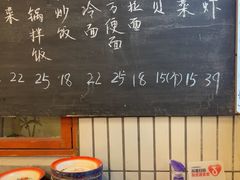 菜
锅拌饭
炒饭
冷面
方便面
拉面
贝
菜
虾
22 25 18 22 25 18 15(个) 15 39